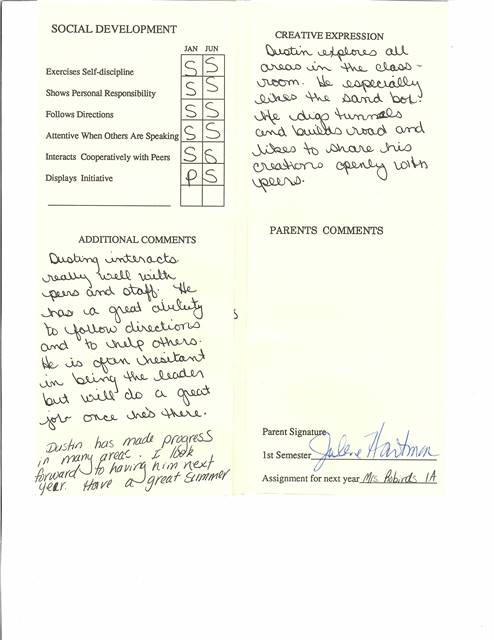 SOCIAL DEVELOPMENT
JAN JUN
Exercises Self-discipline S S
Shows Personal Responsibility S S
Follows Directions S S
Attentive When Others Are Speaking S S
Interacts Cooperatively with Peers S G
Displays Initiative P S
ADDITIONAL COMMENTS
Dusting interacts
really well with
peers and staff. He
has a great ability
to follow directions
and to help others.
He is often hesitant
in being the leader
but will do a great
job once he's there.
Dustin has made progress
in many areas. I look
forward to having him next
year. Have a great summer
CREATIVE EXPRESSION
Dustin explores all
areas in the class-
room. He especially
likes the sand box.
He digs tunnels
and builds road and
likes to share his
creations openly with
peers.
PARENTS COMMENTS
Parent Signature
1st Semester Julene Hartman
Assignment for next year Mrs Robirds 1A